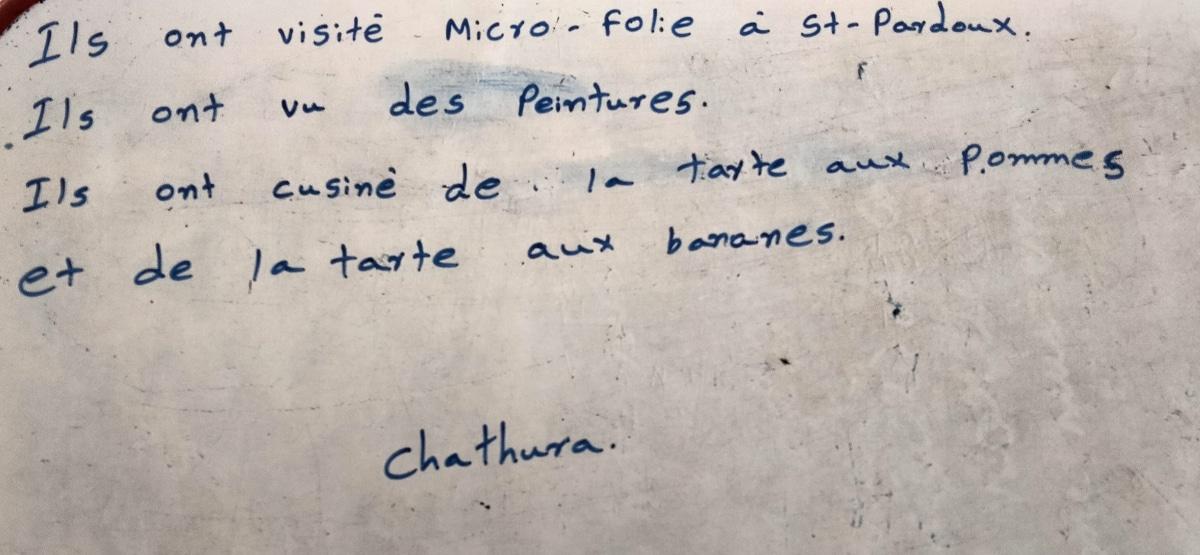 Ils ont visité Micro-Folie à St-Pardoux.
Ils ont vu des Peintures.
Ils ont cusiné de la tarte aux Pommes
et de la tarte aux bananes.
Chathura.